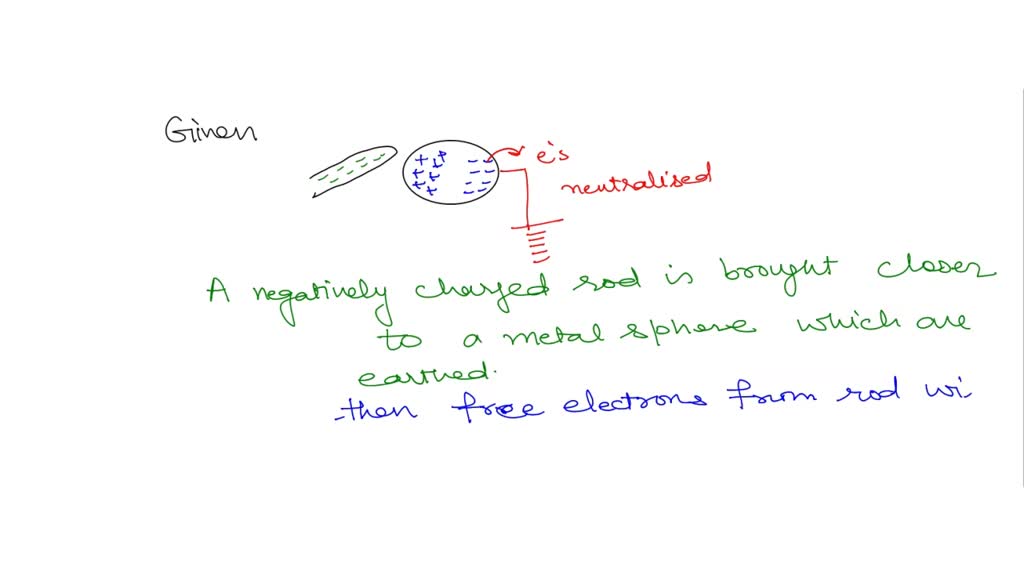 Given
e's
neutralised
A negatively charged rod is brought closer
to a metal sphere which are
earthed.
then free electrons from rod wi